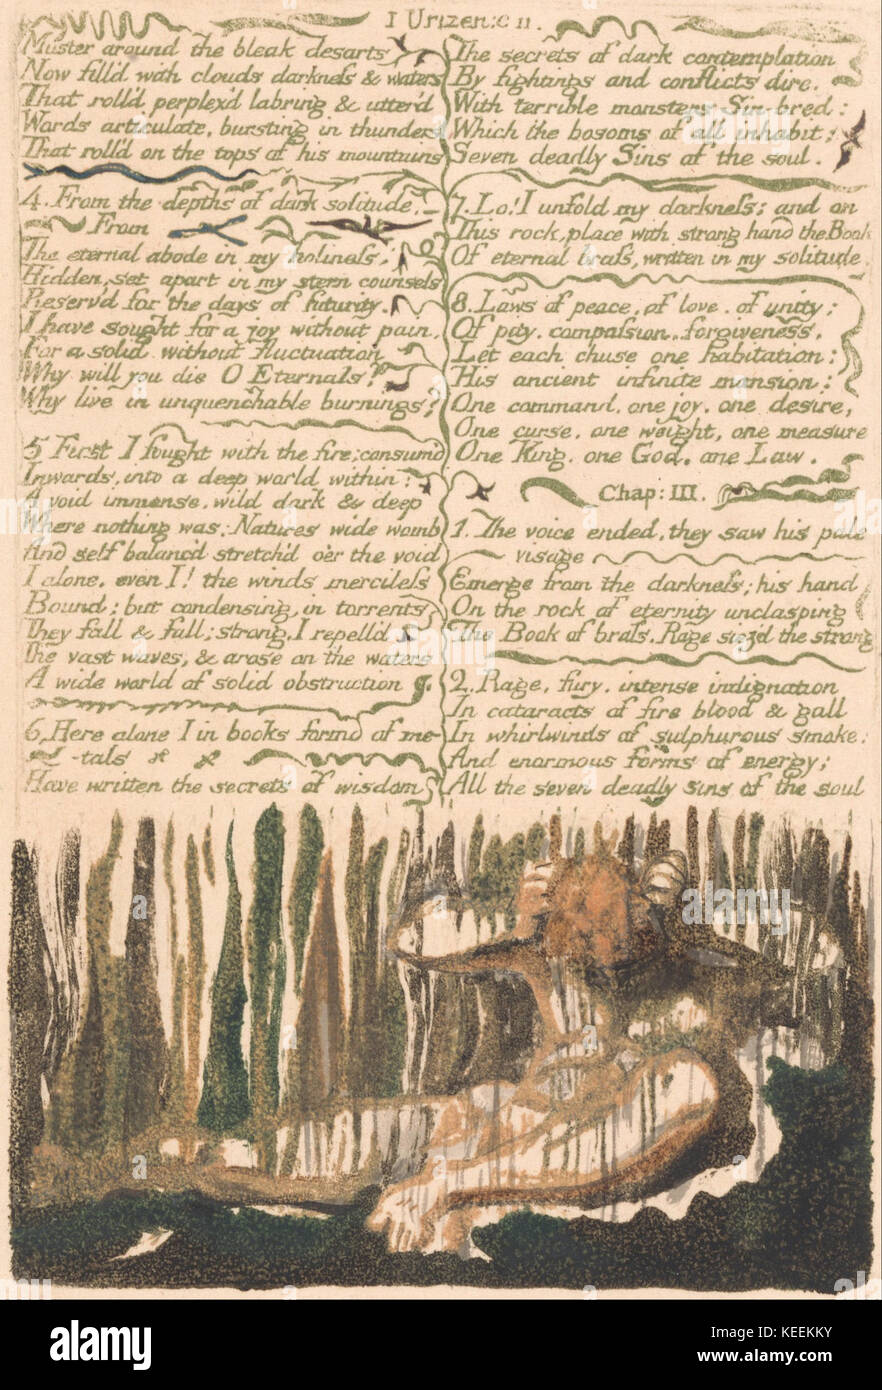 I Urizen: C II.
Muster around the bleak desarts
Now fill'd with clouds, darkness & waters
That roll'd perplex'd labring & utter'd
Words articulate, bursting in thunders
That roll'd on the tops of his mountains
4. From the depths of dark solitude.
From
The eternal abode in my holiness,
Hidden, set apart in my stern counsels
Reserv'd for the days of futurity,
I have sought for a joy without pain,
For a solid without fluctuation
Why will you die O Eternals?
Why live in unquenchable burnings?
5 First I fought with the fire; consum'd
Inwards, into a deep world within:
A void immense, wild dark & deep
Where nothing was: Natures wide womb
And self balanc'd stretch'd o'er the void
I alone, even I! the winds merciless
Bound; but condensing, in torrents
They fall & fall; strong, I repell'd
The vast waves, & arose on the waters
A wide world of solid obstruction
6. Here alone I in books formd of me-
-tals
Have written the secrets of wisdom
The secrets of dark contemplation
By fightings and conflicts dire,
With terrible monsters Sin-bred:
Which the bosoms of all inhabit;
Seven deadly Sins of the soul.
7. Lo! I unfold my darkness: and on
This rock, place with strong hand the Book
Of eternal brass, written in my solitude.
8. Laws of peace, of love, of unity:
Of pity, compassion, forgiveness.
Let each chuse one habitation:
His ancient infinite mansion:
One command, one joy, one desire,
One curse, one weight, one measure
One King, one God, one Law.
Chap: III.
1. The voice ended, they saw his pale
visage
Emerge from the darkness; his hand
On the rock of eternity unclasping
The Book of brass. Rage siez'd the strong
2. Rage, fury, intense indignation
In cataracts of fire blood & gall
In whirlwinds of sulphurous smoke:
And enormous forms of energy;
All the seven deadly sins of the soul
alamy
Image ID: KEEKKY
www.alamy.com